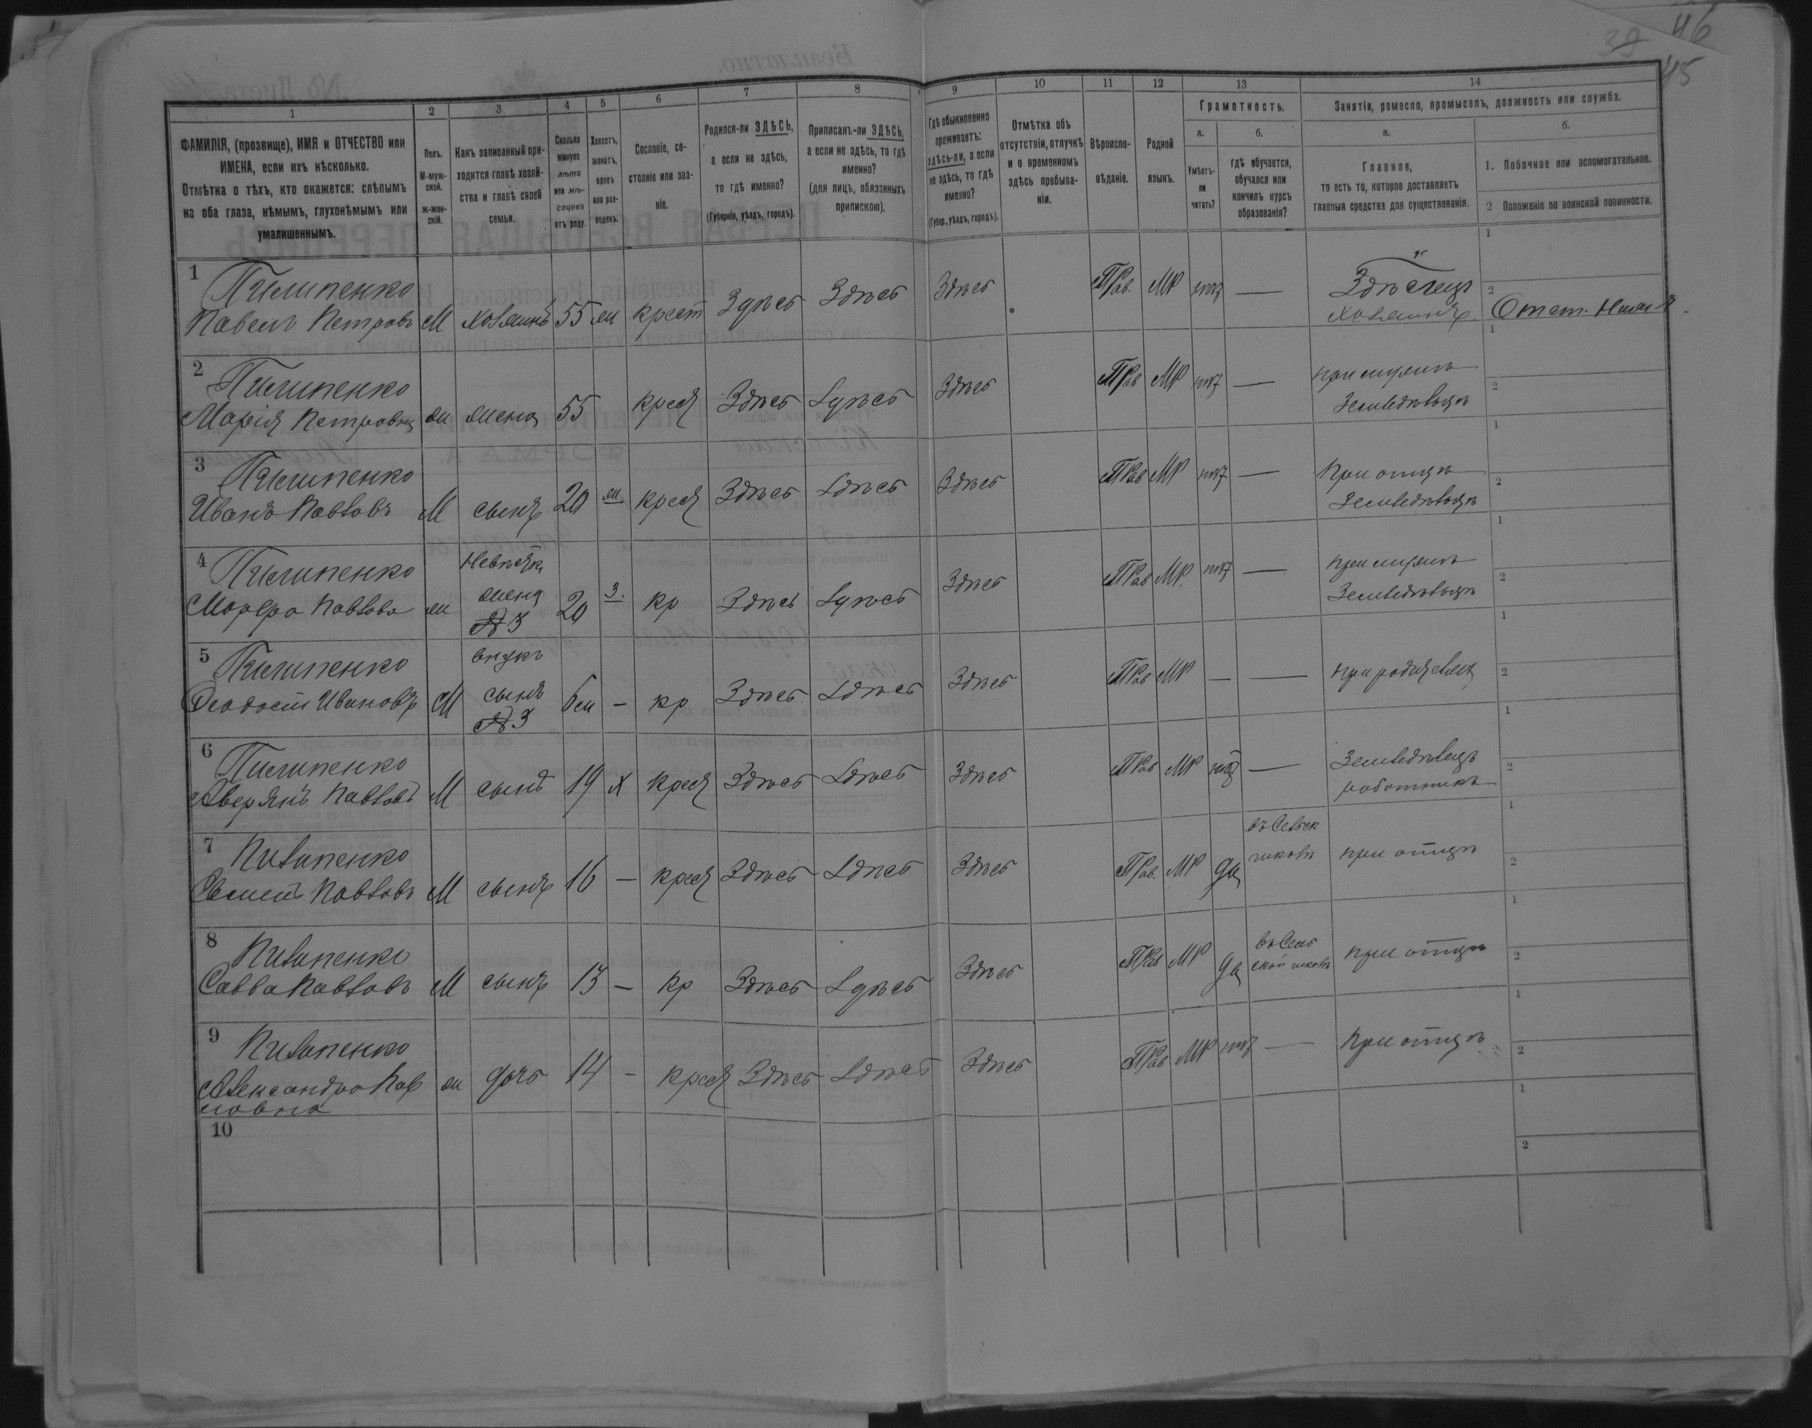 39 46
45
1 2 3 4 5 6 7 8 9 10 11 12 13 14
ФАМИЛІЯ, (прозвище), ИМЯ и ОТЧЕСТВО или
ИМЕНА, если ихъ нѣсколько.
Отмѣтка о тѣхъ, кто окажется: слѣпымъ
на оба глаза, нѣмымъ, глухонѣмымъ или
умалишеннымъ.
Полъ.
М-муж-
ской.
ж-жен-
скій.
Какъ записанный при-
ходится главѣ хозяй-
ства и главѣ своей
семьи.
Сколько
минуло
лѣтъ
или мѣ-
сяцевъ
отъ роду.
Холостъ,
женатъ,
вдовъ
или раз-
веденъ.
Сословіе, со-
стояніе или зва-
ніе.
Родился-ли ЗДѢСЬ,
а если не здѣсь,
то гдѣ именно?
(Губернія, уѣздъ, городъ).
Приписанъ-ли ЗДѢСЬ,
а если не здѣсь, то гдѣ
именно?
(для лицъ, обязанныхъ
припискою).
Гдѣ обыкновенно
проживаетъ:
здѣсь-ли, а если
не здѣсь, то гдѣ
именно?
(Губер., уѣздъ, городъ).
Отмѣтка объ
отсутствіи, отлучкѣ
и о временномъ
здѣсь пребыва-
ніи.
Вѣроиспо-
вѣданіе.
Родной
языкъ.
Грамотность.
а.
Умѣетъ-
ли
читать?
б.
гдѣ обучается,
обучался или
кончилъ курсъ
образованія?
Занятія, ремесло, промыселъ, должность или служба.
а.
Главное,
то есть то, которое доставляетъ
главныя средства для существованія.
б.
1. Побочное или вспомогательное.
2 Положеніе по воинской повинности.
1 Пилипенко
Павелъ Петровъ М хозяинъ 55 ж крест Здѣсь Здѣсь Здѣсь Прав. МР нѣтъ —
хозяинъ
2 Пилипенко
Марія Петровна ж жена 55 крест Здѣсь Здѣсь Здѣсь Прав МР нѣтъ — при мужѣ
3 Пилипенко
Иванъ Павловъ М сынъ 20 ж крест Здѣсь Здѣсь Здѣсь Прав МР нѣтъ — при отцѣ
4 Пилипенко
Павлова ж невѣстка
жена
№ 3 20 З. кр Здѣсь Здѣсь Здѣсь Прав МР. нѣтъ — при мужѣ
5 Пилипенко
Феодосій Ивановъ М внукъ
сынъ
№ 3 6м — кр Здѣсь Здѣсь Здѣсь Прав МР — —
6 Пилипенко
Аверянъ Павловъ М сынъ 19 х крест Здѣсь Здѣсь Здѣсь Прав МР нѣтъ —
работникъ
7 Пилипенко
Павловъ М сынъ 16 — крест Здѣсь Здѣсь Здѣсь Прав. МР да въ Сельск
школѣ при отцѣ
8 Пилипенко
Савва Павловъ М сынъ 13 — кр Здѣсь Здѣсь Здѣсь Прав МР да въ Сель
ской школѣ при отцѣ
9 Пилипенко
Александра Пав
ловна ж дочь 14 — крест Здѣсь Здѣсь Здѣсь Прав МР нѣтъ — При отцѣ
10